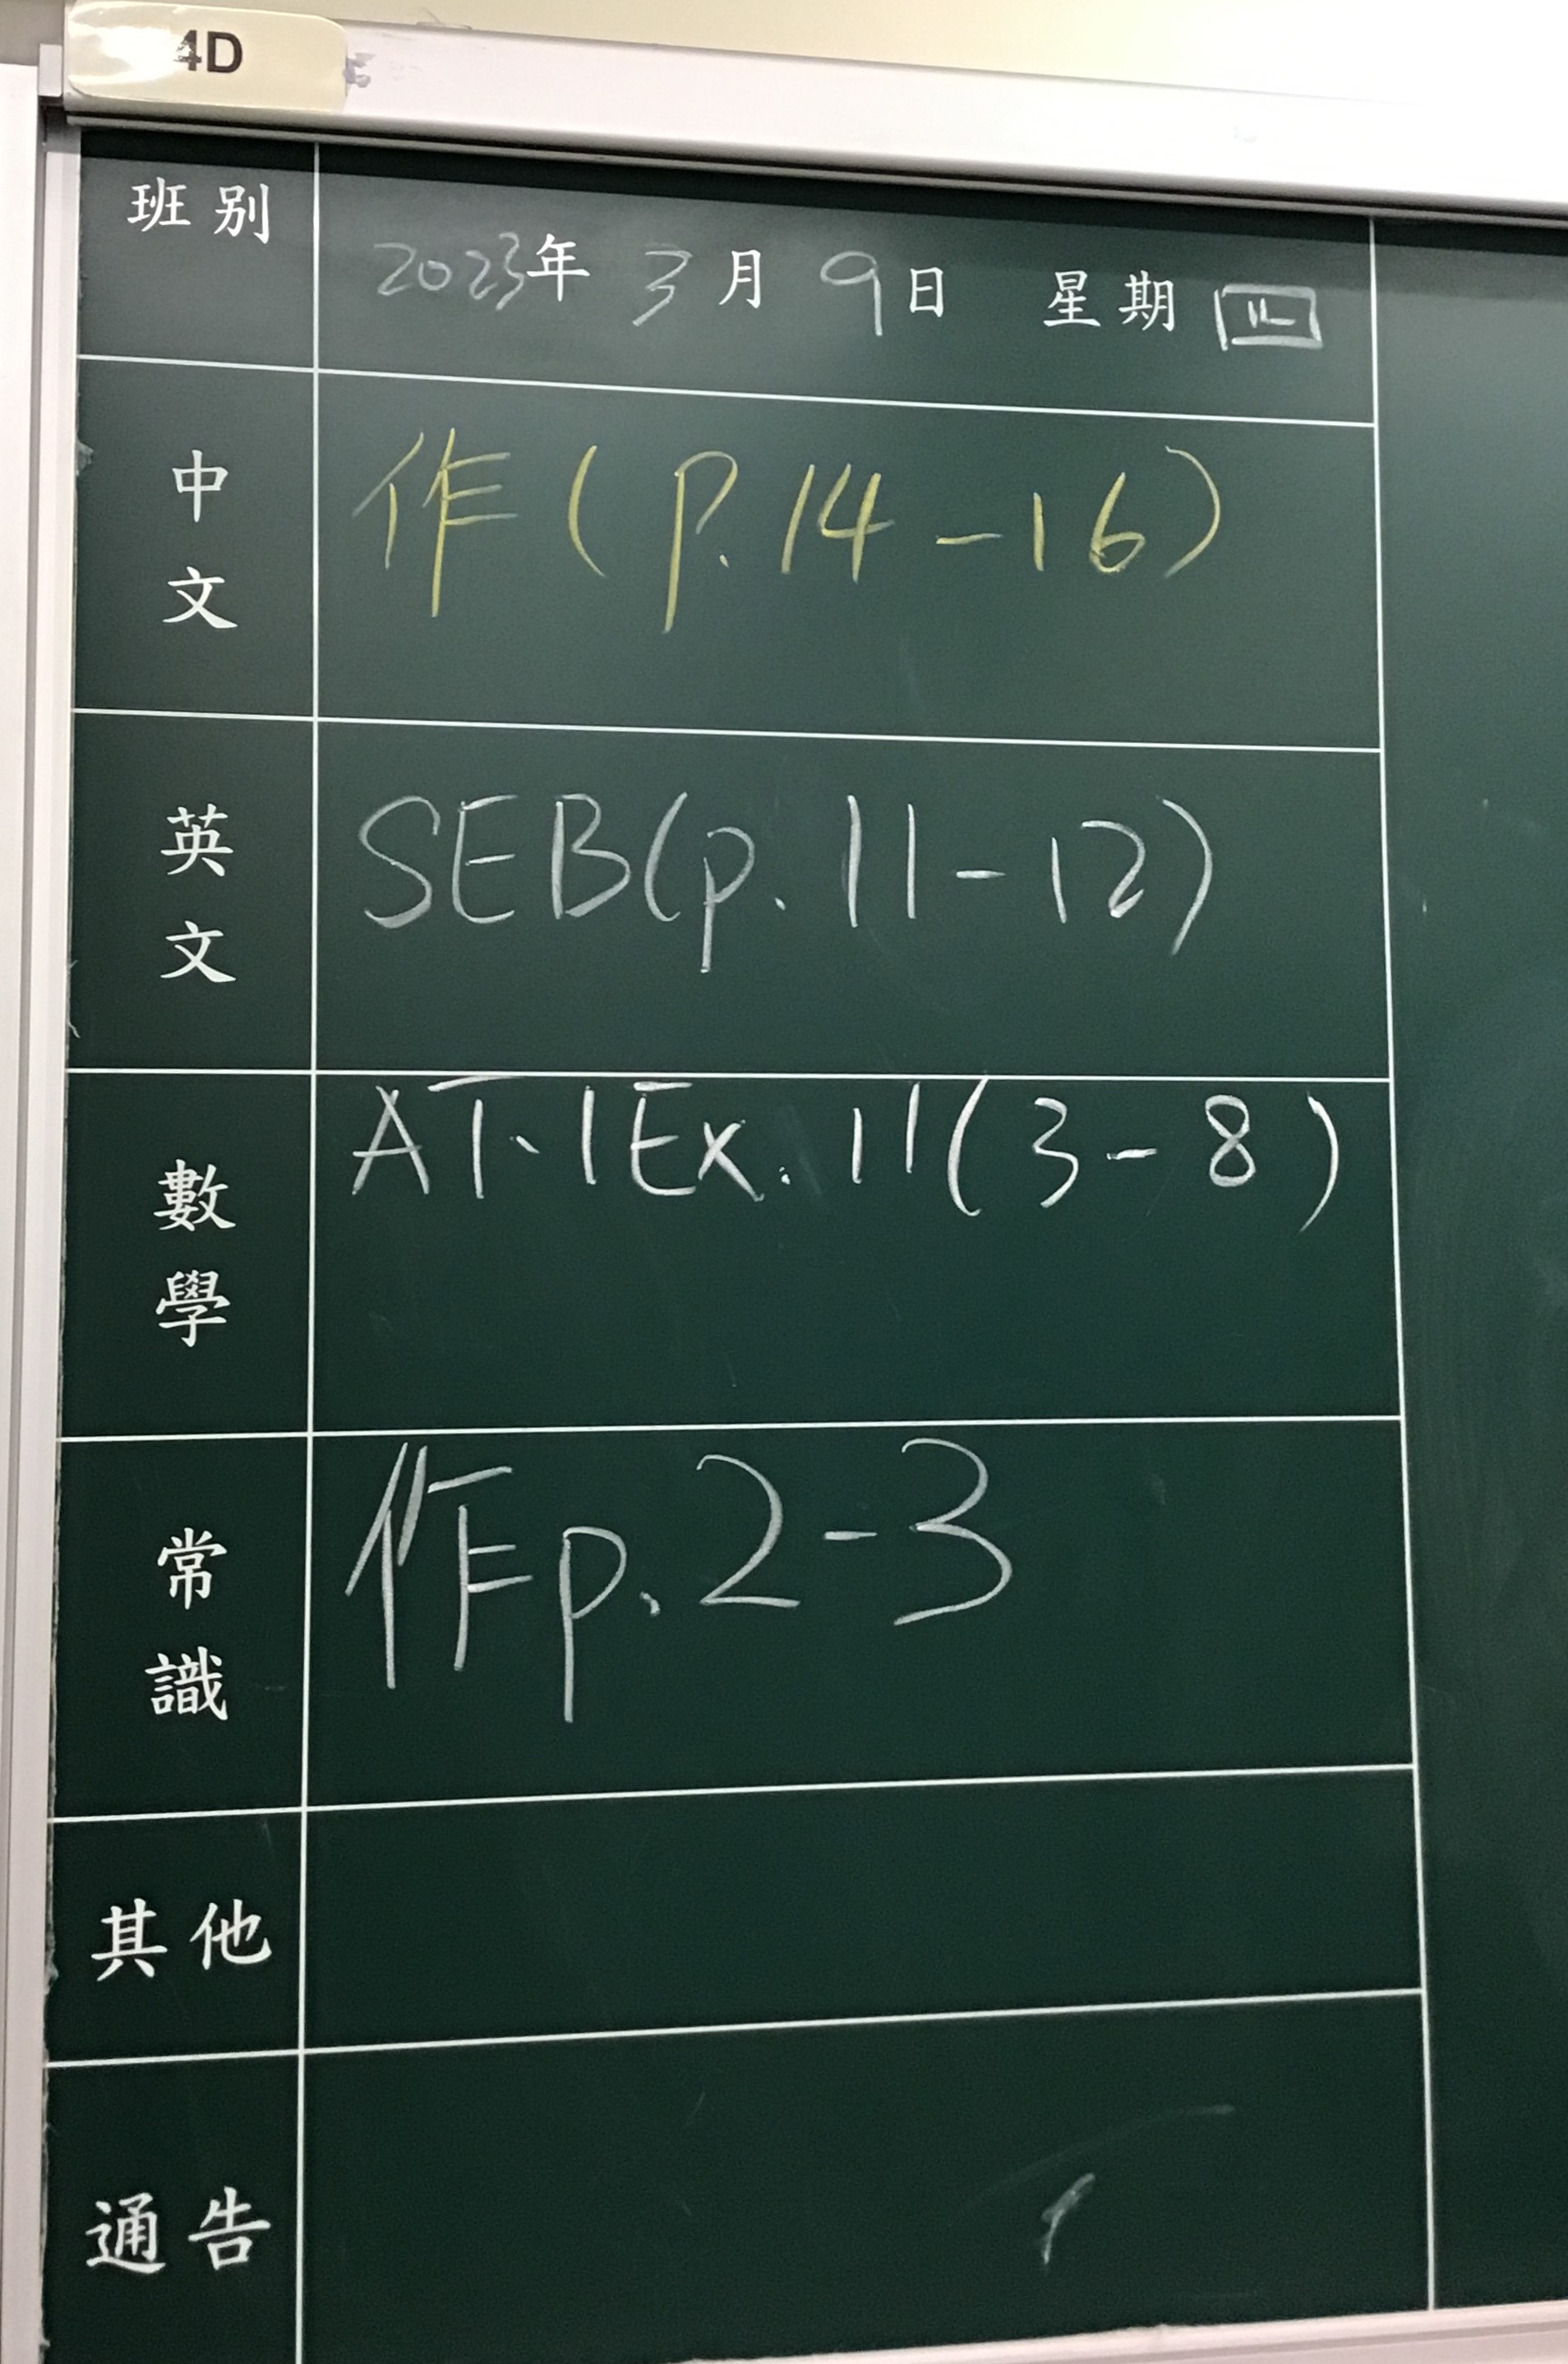 4D
班別
2023年 3月 9日 星期四
中文
作(P.14-16)
英文
SEB(p.11-12)
數學
AT.1Ex.11(3-8)
常識
作p.2-3
其他
通告